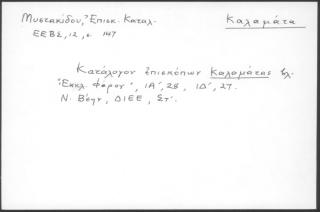 Μυστακίδου, Ἐπισκ. Καταλ.
Καλαμάτα
ΕΕΒΣ, 12, σ. 147
Κατάλογον ἐπισκόπων Καλαμάτας βλ.
"Εκκλ. Φάρον", ΙΑ', 28, ΙΔ', 27.
Ν. Βέην, ΔΙΕΕ, Στ'.